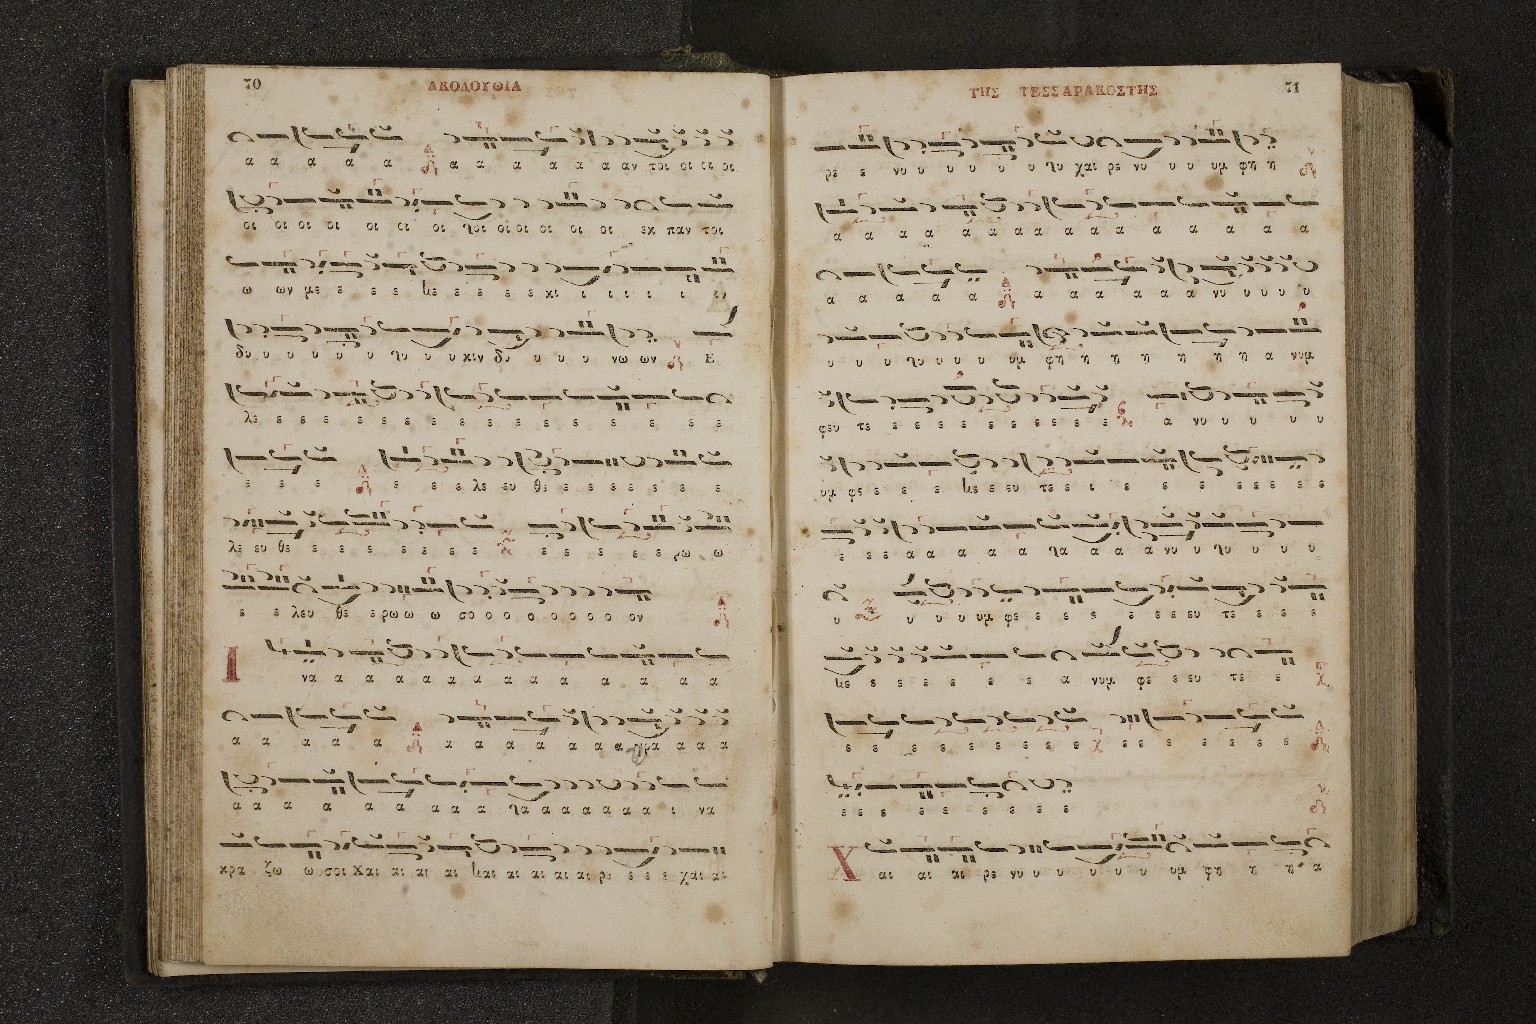 70
ΑΚΟΛΟΥΘΙΑ
α α α α α α α α α α α αν τοι οι οι οι
οι οι οι οι οι οι οι χοι οι οι οι οι οι εκ παν τοι
ω ων με ε ε ε με ε ε ε ε κι ι ι ι ι ι ιν
δυ υ υ υ υ υ χυ υ υ κιν δυ υ υ υ νω ων Ε
λε ε ε ε ε ε ε ε ε ε ε ε ε ε ε
ε ε ε ε ε ε λε ευ θε ε ε ε ε ε ε ε
λε ευ θε ε ε ε ε ε ε ε ε ε ε ε ε ρω ω
ε ε λευ θε ε ρω ω ω σο ο ο ο ο ο ο ο ο ον
Ι να α α α α α α α α α α α α
α α α α α α α α α α α α κρα α α α
α α α α α α α α χα α α α α α α α ι να
κρα ζω ω σοι Χαι αι αι αι μαι αι αι αι αι ρε ε ε ε χαι αι
ΤΗΣ ΤΕΣΣΑΡΑΚΟΣΤΗΣ
71
ρε ε νυ υ υ υ υ υ χυ χαι ρε νυ υ υ υμ φη η
α α α α α α α α α α α α α α α α
α α α α α α α α α α α α νυ υ υ υ υ
υ υ υ χυ υ υ υ υμ φη η η η η η η α νυμ
φευ τε ε ε ε ε ε ε ε ε ε ε α νυ υ υ υ υ
υμ φε ε ε ε με ε ευ τε ε ι ε ε ε ε ε ε ε ε
ε ε ε α α α α α χα α α α νυ υ χυ υ υ υ
υ υ υ υ υμ φε ε ε ε ε ε ε ευ τε ε ε ε
με ε ε ε ε ε ε α νυμ φε ε ευ τε ε
ε ε ε ε ε ε ε ε ε ε ε ε ε ε ε
ε ε ε ε ε ε ε ε ε
Χ αι αι αι ρε νυ υ υ υ υ υ υμ φη η η α